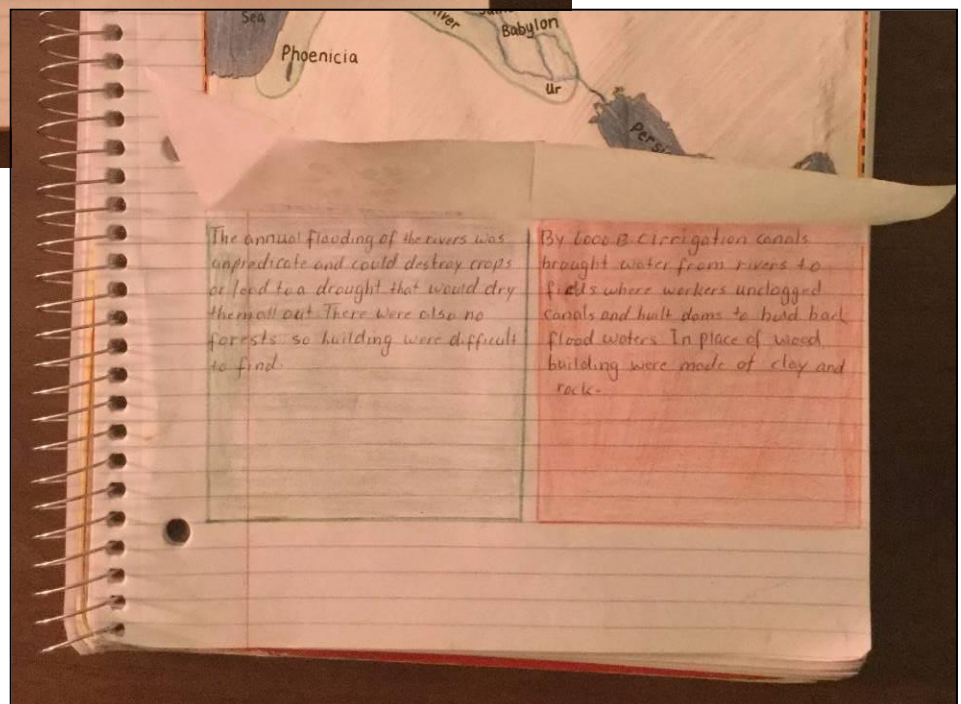 Sea
Phoenicia
River
Babylon
Ur
Persi
The annual flooding of the rivers was
unpredicate and could destroy crops
or lead to a drought that would dry
them all out. There were also no
forests so building were difficult
to find.
By 6000 B.C irrigation canals
brought water from rivers to
fields where workers unclogged
canals and built dams to hold back
flood waters. In place of wood,
building were made of clay and
rock.